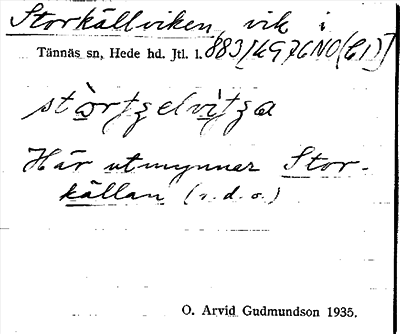 Storkällviken, vik i
Tännäs sn, Hede hd. Jtl. l. 883[49 76 NO (C1)]
Här utmynnar Stor-
källan (s. d. o.)
O. Arvid Gudmundson 1935.